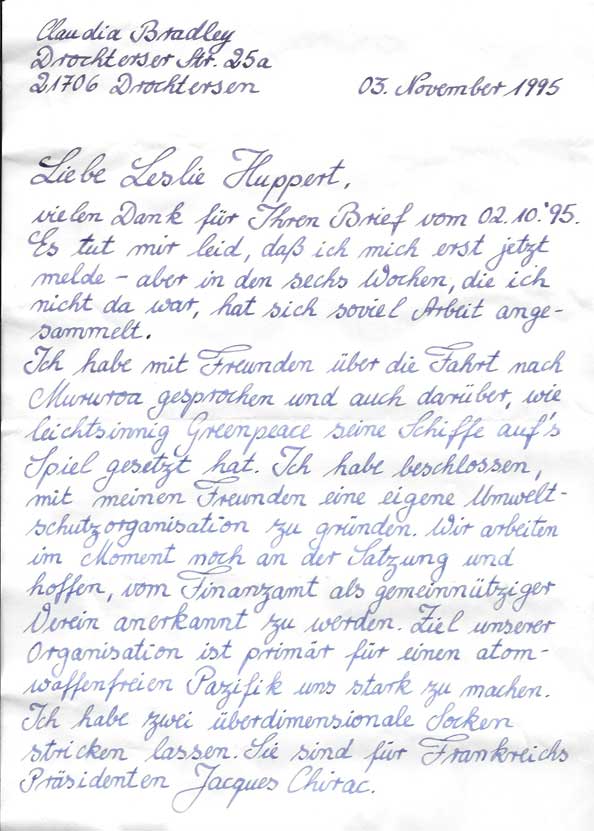 Claudia Bradley
Drochterser Str. 25a
21706 Drochtersen 03. November 1995
Liebe Leslie Huppert,
vielen Dank für Ihren Brief vom 02.10.'95.
Es tut mir leid, daß ich mich erst jetzt
melde – aber in den sechs Wochen, die ich
nicht da war, hat sich soviel Arbeit ange-
sammelt.
Ich habe mit Freunden über die Fahrt nach
Mururoa gesprochen und auch darüber, wie
leichtsinnig Greenpeace seine Schiffe auf's
Spiel gesetzt hat. Ich habe beschlossen,
mit meinen Freunden eine eigene Umwelt-
schutzorganisation zu gründen. Wir arbeiten
im Moment noch an der Satzung und
hoffen, vom Finanzamt als gemeinnütziger
Verein anerkannt zu werden. Ziel unserer
Organisation ist primär für einen atom-
waffenfreien Pazifik uns stark zu machen.
Ich habe zwei überdimensionale Socken
stricken lassen. Sie sind für Frankreichs
Präsidenten Jacques Chirac.